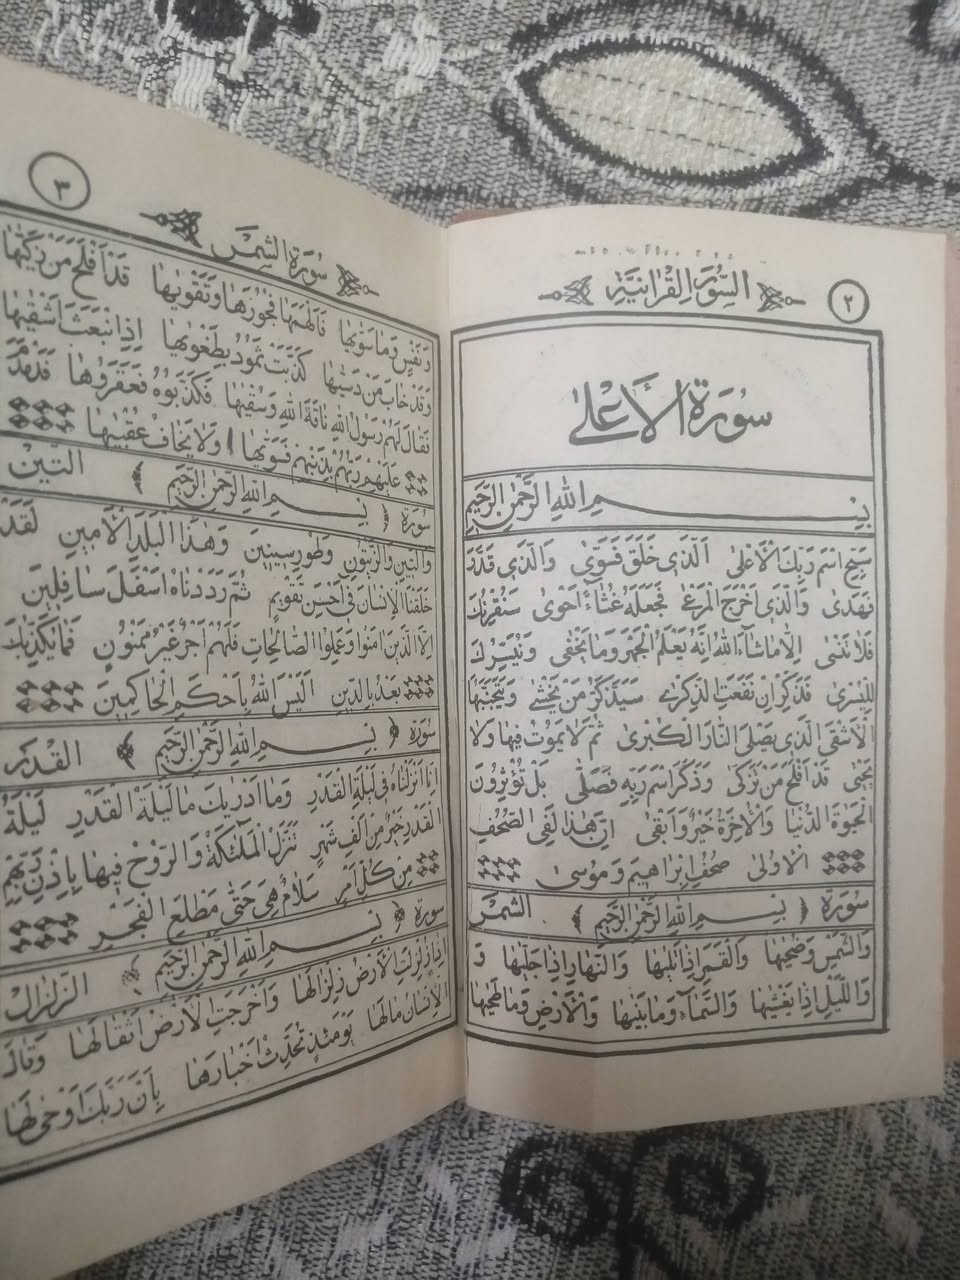 ٢
السور القرآنية
سورة الأعلى
بسم الله الرحمن الرحيم
سبح اسم ربك الأعلى الذي خلق فسوى والذي قدر
فهدى والذي أخرج المرعى فجعله غثاء أحوى سنقرئك
فلا تنسى إلا ما شاء الله إنه يعلم الجهر وما يخفى ونيسرك
لليسرى فذكر إن نفعت الذكرى سيذكر من يخشى ويتجنبها
الأشقى الذي يصلى النار الكبرى ثم لا يموت فيها ولا
يحيى قد أفلح من تزكى وذكر اسم ربه فصلى بل تؤثرون
الحيوة الدنيا والآخرة خير وأبقى إن هذا لفي الصحف
الأولى صحف إبراهيم وموسى
سورة ﴿ بسم الله الرحمن الرحيم ﴾ الشمس
والشمس وضحيها والقمر إذا تليها والنهار إذا جليها و
والليل إذا يغشيها والسماء وما بنيها والأرض وما طحيها
٣
سورة الشمس
ونفس وما سويها فألهمها فجورها وتقويها قد أفلح من زكيها
وقد خاب من دسيها كذبت ثمود بطغويها إذ انبعث أشقيها
فقال لهم رسول الله ناقة الله وسقيها فكذبوه فعقروها فدمدم
عليهم ربهم بذنبهم فسويها ولا يخاف عقبيها
سورة ﴿ بسم الله الرحمن الرحيم ﴾ التين
والتين والزيتون وطور سينين وهذا البلد الأمين لقد
خلقنا الإنسان في أحسن تقويم ثم رددناه أسفل سافلين
إلا الذين آمنوا وعملوا الصالحات فلهم أجر غير ممنون فما يكذبك
بعد بالدين أليس الله بأحكم الحاكمين
سورة ﴿ بسم الله الرحمن الرحيم ﴾ القدر
إنا أنزلناه في ليلة القدر وما أدريك ما ليلة القدر ليلة
القدر خير من ألف شهر تنزل الملئكة والروح فيها بإذن ربهم
من كل أمر سلام هي حتى مطلع الفجر
سورة ﴿ بسم الله الرحمن الرحيم ﴾ الزلزال
إذا زلزلت الأرض زلزالها وأخرجت الأرض أثقالها وقال
الإنسان مالها يومئذ تحدث أخبارها بأن ربك أوحى لها